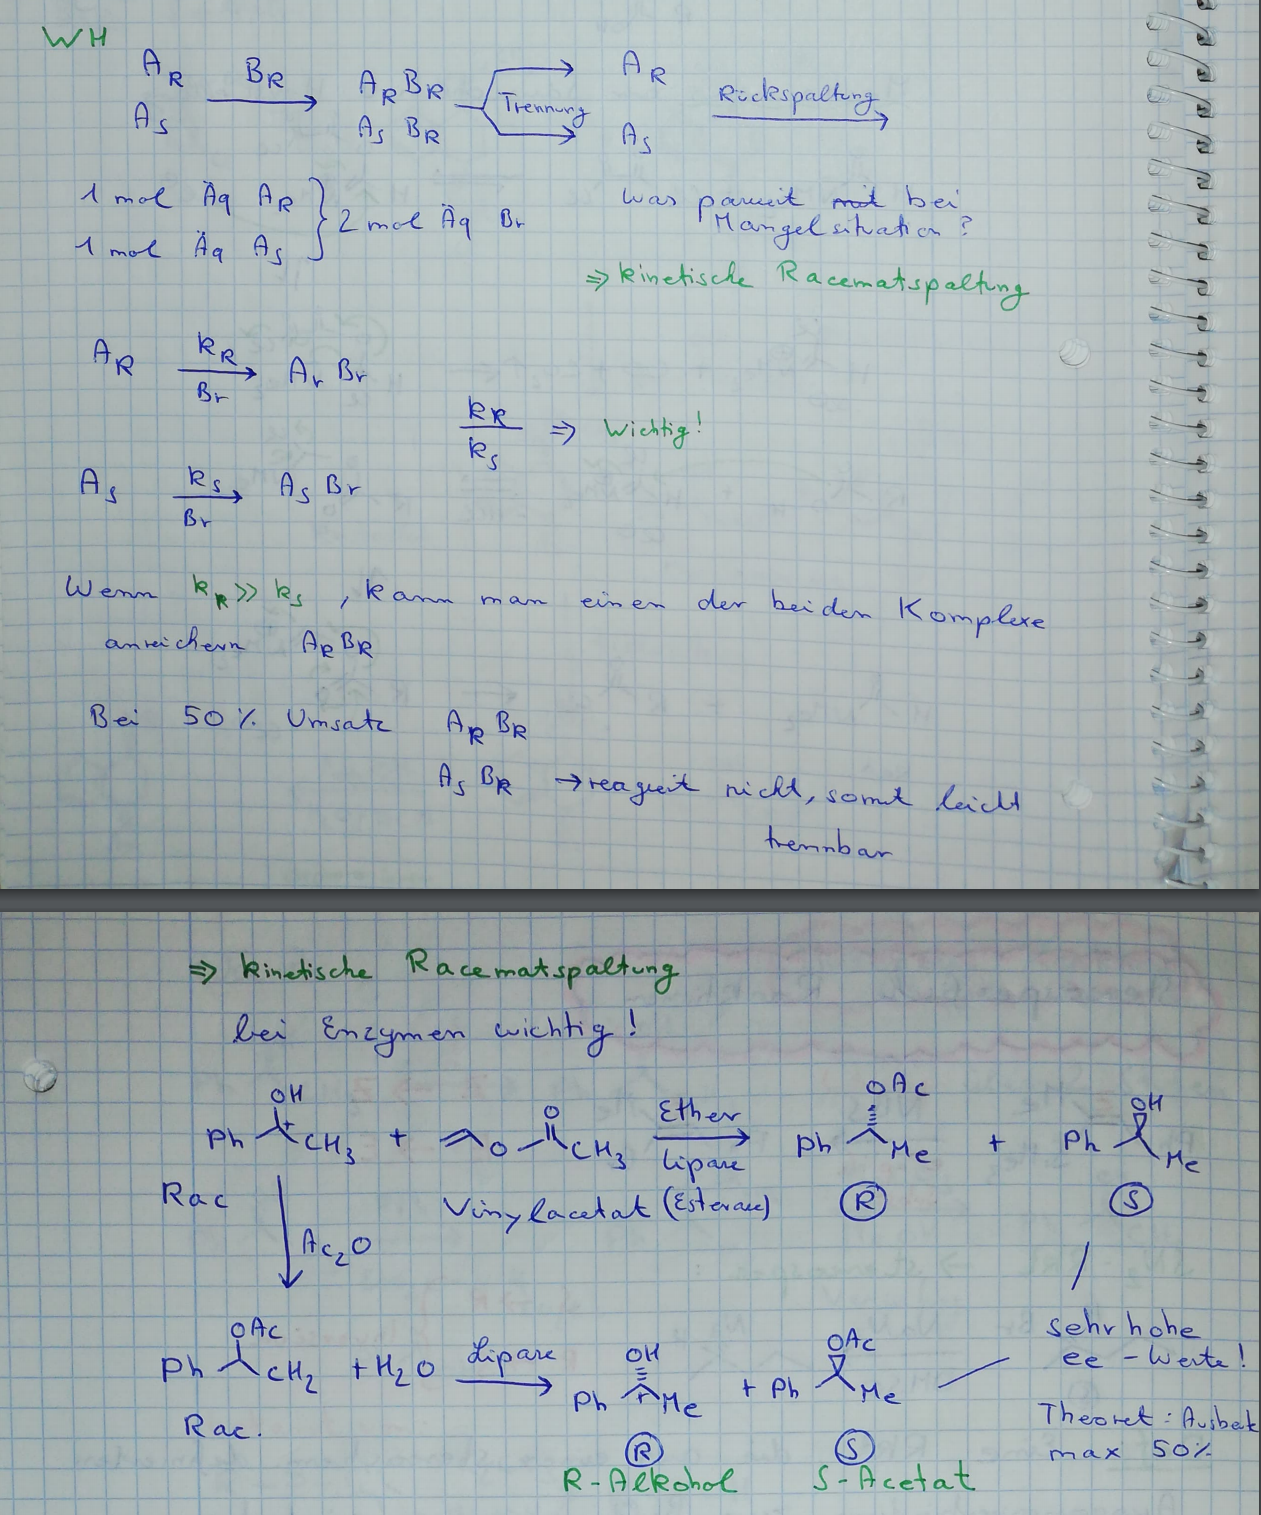 WH
A_R B_R A_R B_R A_R
A_S A_S B_R Trennung A_S Rückspaltung
1 mol Äq A_R
1 mol Äq A_S } 2 mol Äq Br
Was passiert bei
Mangelsituation?
⇒ kinetische Racematspaltung
A_R k_R Br → A_r Br
k_R / k_S ⇒ Wichtig!
A_S k_S Br → A_S Br
Wenn k_R >> k_S, kann man einen der beiden Komplexe
anreichern A_R B_R
Bei 50% Umsatz A_R B_R
A_S B_R → reagiert nicht, somit leicht
trennbar
⇒ kinetische Racematspaltung
bei Enzymen wichtig!
OH O OAc OH
Ph CH₃ + O CH₃ Ether → Ph Me + Ph Me
Lipase
Rac Vinylacetat (Esterase) R S
Ac₂O
OAc OH OAc
Ph CH₂ + H₂O Lipase → Ph Me + Ph Me
Rac. R S
R-Alkohol S-Acetat
sehr hohe
ee-Werte!
Theoret: Ausbeut
max 50%